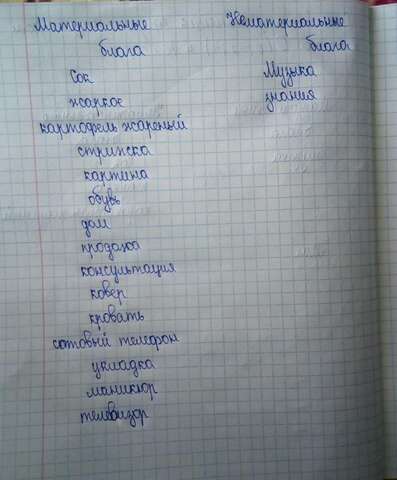 Материальные Нематериальные
блага блага
Сок Музыка
жаркое знания
картофель жареный
стрижка
картина
обувь
дом
продажа
консультация
ковёр
кровать
сотовый телефон
укладка
маникюр
телевизор